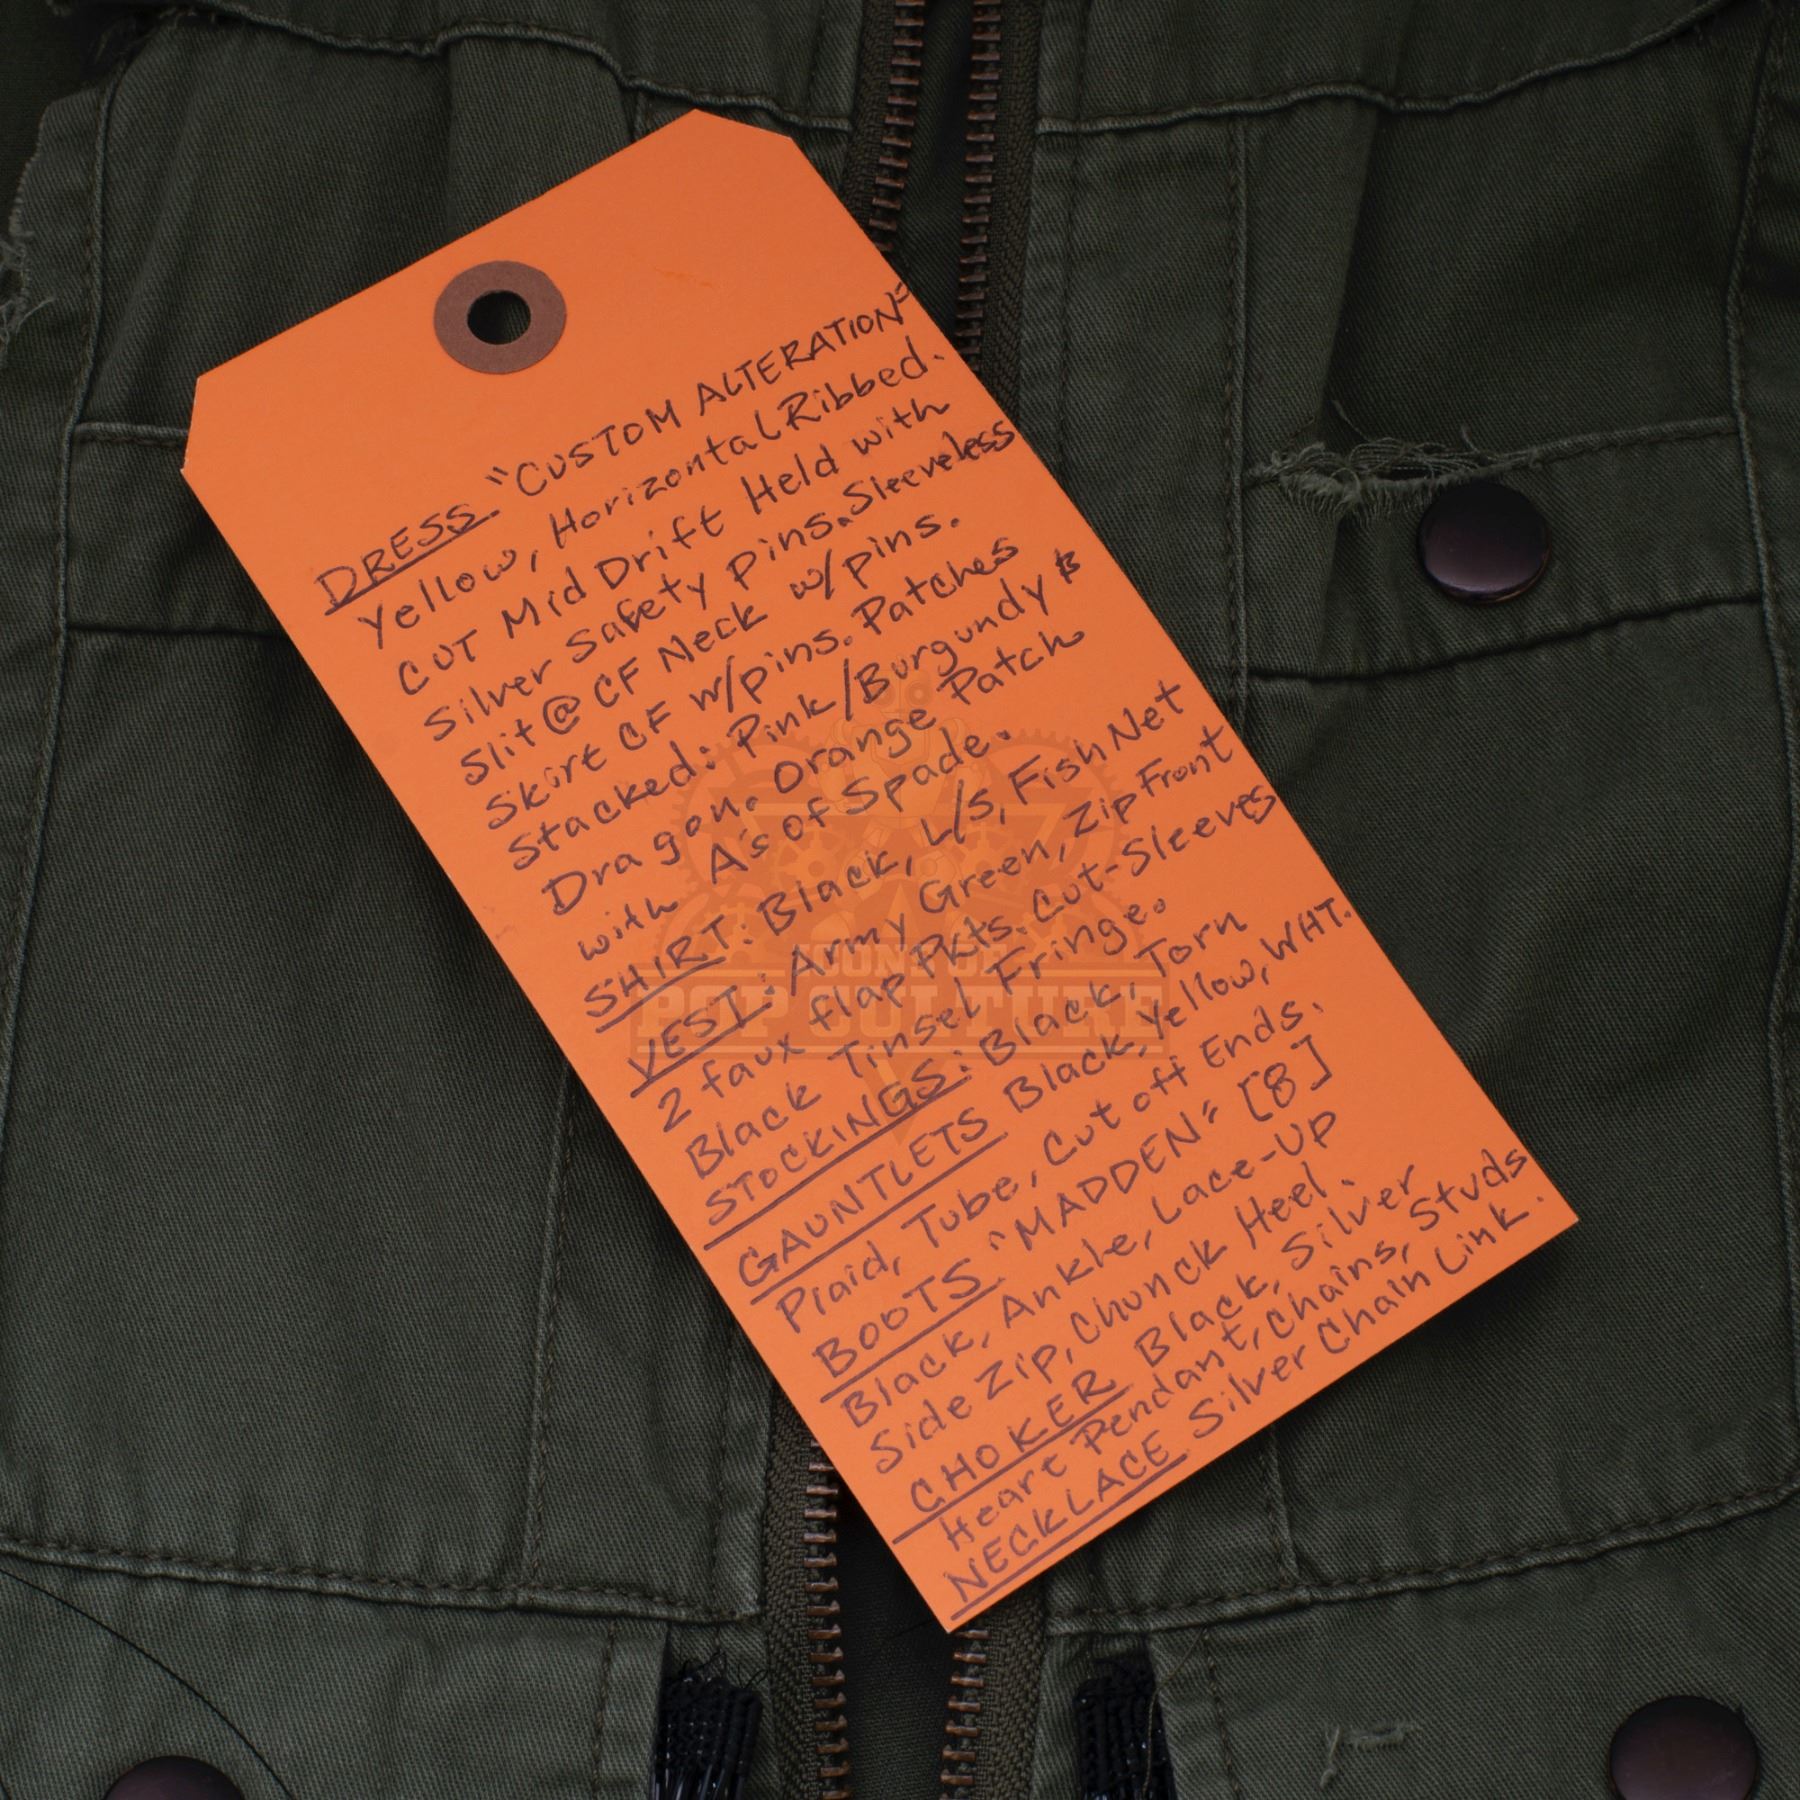 DRESS "CUSTOM ALTERATION"
Yellow, Horizontal Ribbed.
CUT Mid Drift Held with
Silver Safety pins. Sleeveless
Slit @ CF Neck w/pins.
Skirt CF w/pins. Patches
Stacked: Pink/Burgundy &
Dragon. Orange Patch
with A's of Spade.
SHIRT: Black, L/S, Fish Net
VEST: Army Green, Zip Front
2 faux flap Pkts. Cut-Sleeves
Black Tinsel Fringe.
STOCKINGS: Black, Torn
GAUNTLETS Black, Yellow, WHT.
Plaid, Tube, Cut off Ends.
BOOTS "MADDEN" [8]
Black, Ankle, Lace-Up
Side Zip, Chunck Heel.
CHOKER Black, Silver
Heart Pendant, Chains, Studs
NECKLACE Silver Chain Link.
ICONS OF
POP CULTURE